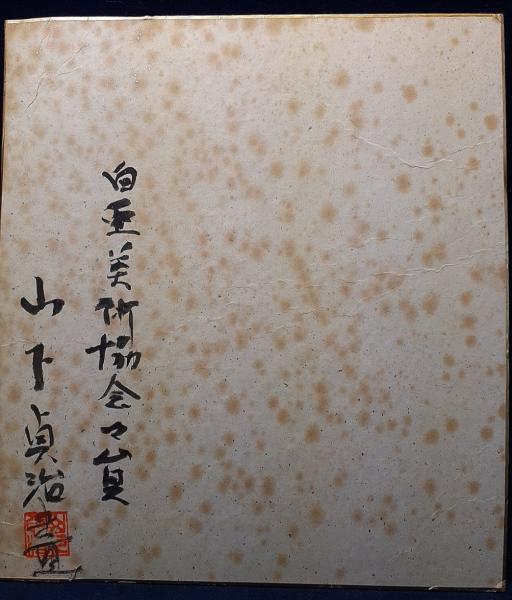 白亜美術協会々員
山下貞治画